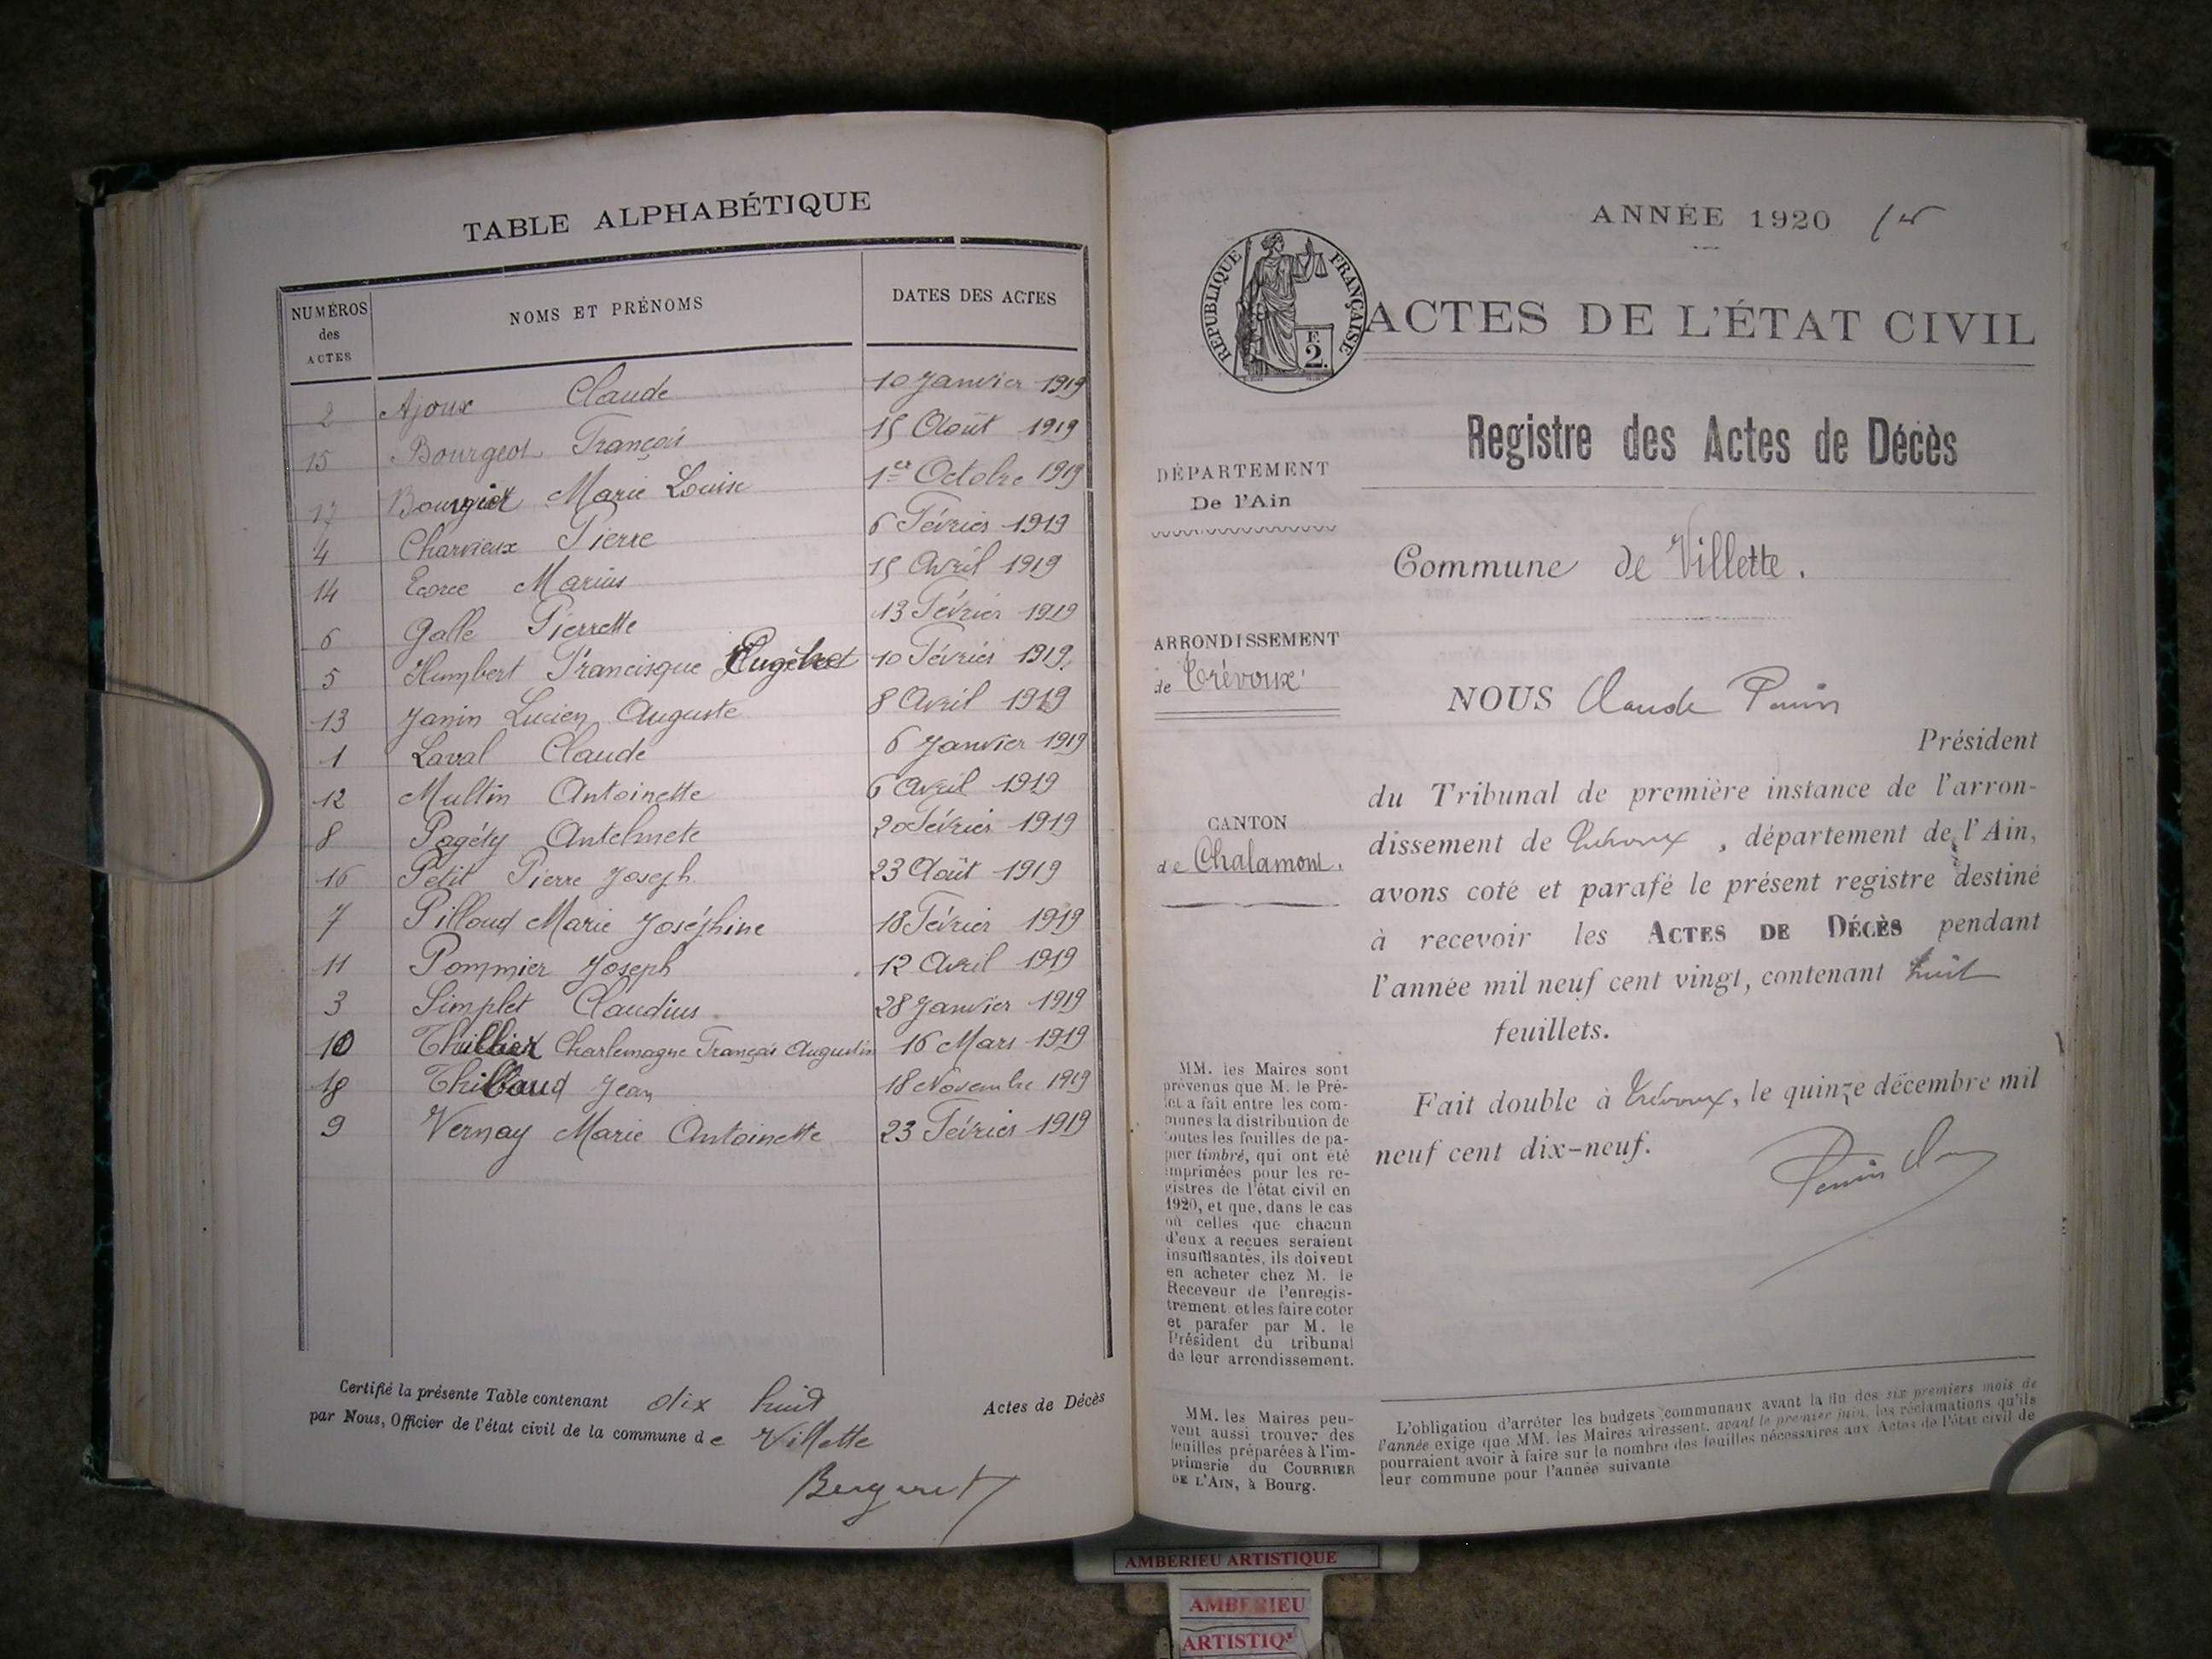 TABLE ALPHABÉTIQUE
NUMÉROS des ACTES
NOMS ET PRÉNOMS
DATES DES ACTES
2 Ajoux Claude 10 Janvier 1919
15 Bourgeot François 15 Août 1919
17 Marie Louise 1er Octobre 1919
4 Charvieux Pierre 6 Février 1919
14 Marius 15 Avril 1919
6 Galle Pierrette 13 Février 1919
5 Humbert Francisque 10 Février 1919.
13 Janin Lucien Auguste 8 Avril 1919
1 Laval Claude 6 Janvier 1919
12 Multin Antoinette 6 Avril 1919
8 Pagéty 20 Février 1919
16 Petit Pierre Joseph 23 Août 1919
7 Pilloud Marie Joséphine 18 Février 1919
11 Pommier Joseph 12 Avril 1919
3 Simplet Claudius. 28 Janvier 1919
10 Charlemagne François Augustin 16 Mars 1919
18 Thibaud Jean 18 Novembre 1919
9 Vernay Marie Antoinette 23 Février 1919
Certifié la présente Table contenant dix huit Actes de Décès
par Nous, Officier de l'état civil de la commune de Villette
ANNÉE 1920
RÉPUBLIQUE FRANÇAISE
F.
2.
ACTES DE L'ÉTAT CIVIL
Registre des Actes de Décès
DÉPARTEMENT
De l'Ain
Commune de Villette.
ARRONDISSEMENT
de Trévoux
CANTON
de Chalamont.
NOUS Claude
Président
du Tribunal de première instance de l'arron-
dissement de Trévoux, département de l'Ain,
avons coté et parafé le présent registre destiné
à recevoir les ACTES DE DÉCÈS pendant
l'année mil neuf cent vingt, contenant huit
feuillets.
Fait double à Trévoux, le quinze décembre mil
neuf cent dix-neuf.
MM. les Maires sont
prévenus que M. le Pré-
fet a fait entre les com-
munes la distribution de
toutes les feuilles de pa-
pier timbré, qui ont été
imprimées pour les re-
gistres de l'état civil en
1920, et que, dans le cas
où celles que chacun
d'eux a reçues seraient
insuffisantes, ils doivent
en acheter chez M. le
Receveur de l'enregis-
trement et les faire coter
et parafer par M. le
Président du tribunal
de leur arrondissement.
MM. les Maires peu-
vent aussi trouver des
feuilles préparées à l'im-
primerie du COURRIER
DE L'AIN, à Bourg.
L'obligation d'arrêter les budgets communaux avant la fin des six premiers mois de
l'année exige que MM. les Maires adressent, avant le premier juin, les réclamations qu'ils
pourraient avoir à faire sur le nombre des feuilles nécessaires aux Actes de l'état civil de
leur commune pour l'année suivante
AMBERIEU ARTISTIQUE
AMBERIEU
ARTISTIQ